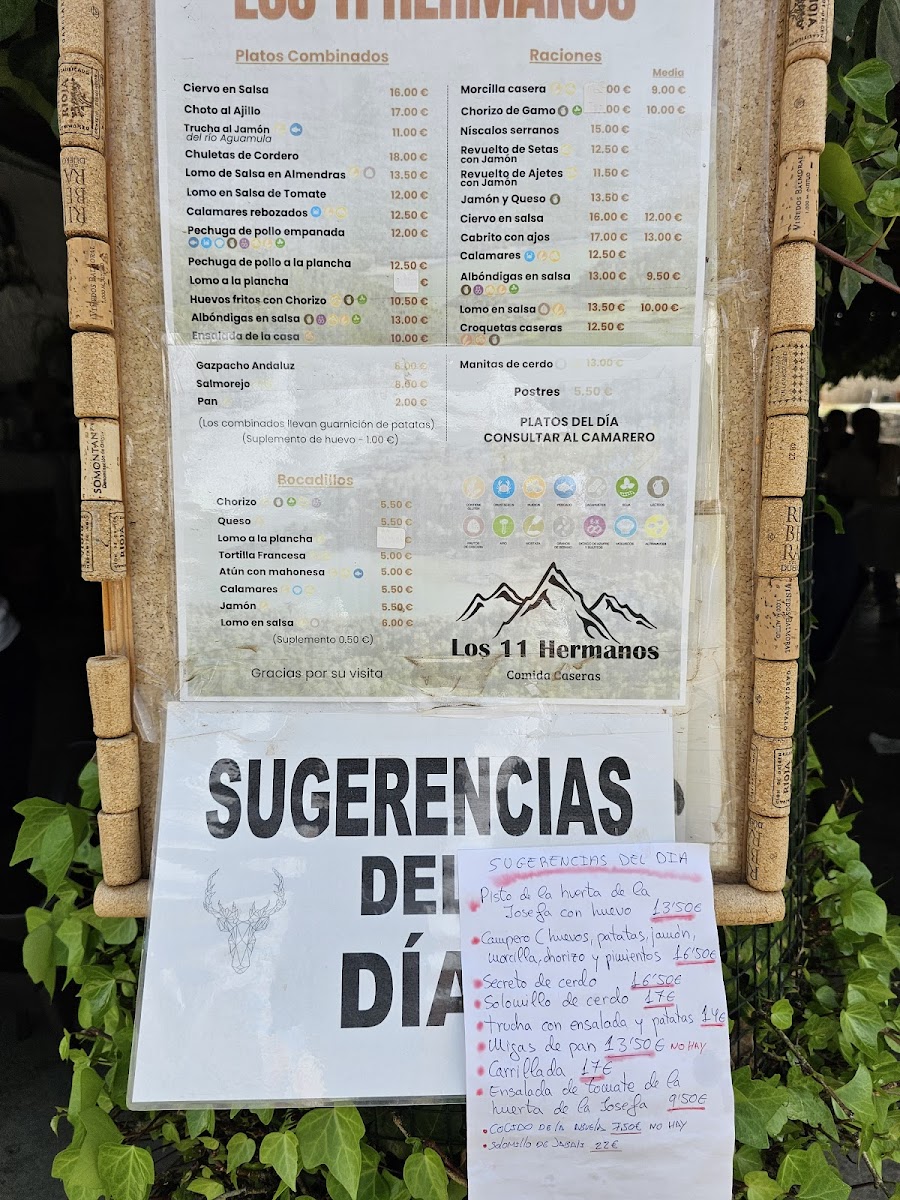 LOS 11 HERMANOS
Platos Combinados
Ciervo en Salsa 16.00 €
Choto al Ajillo 17.00 €
Trucha al Jamón 11.00 €
del río Aguamula
Chuletas de Cordero 18.00 €
Lomo de Salsa en Almendras 13.50 €
Lomo en Salsa de Tomate 12.00 €
Calamares rebozados 12.50 €
Pechuga de pollo empanada 12.00 €
Pechuga de pollo a la plancha 12.50 €
Lomo a la plancha €
Huevos fritos con Chorizo 10.50 €
Albóndigas en salsa 13.00 €
Ensalada de la casa 10.00 €
Gazpacho Andaluz 6.00 €
Salmorejo 8.00 €
Pan 2.00 €
(Los combinados llevan guarnición de patatas)
(Suplemento de huevo - 1.00 €)
Bocadillos
Chorizo 5.50 €
Queso 5.50 €
Lomo a la plancha €
Tortilla Francesa 5.00 €
Atún con mahonesa 5.00 €
Calamares 5.50 €
Jamón 5.50 €
Lomo en salsa 6.00 €
(Suplemento 0.50 €)
Gracias por su visita
Raciones
Media
Morcilla casera 00 € 9.00 €
Chorizo de Gamo .00 € 10.00 €
Níscalos serranos 15.00 €
Revuelto de Setas 12.50 €
con Jamón
Revuelto de Ajetes 11.50 €
con Jamón
Jamón y Queso 13.50 €
Ciervo en salsa 16.00 € 12.00 €
Cabrito con ajos 17.00 € 13.00 €
Calamares 12.50 €
Albóndigas en salsa 13.00 € 9.50 €
Lomo en salsa 13.50 € 10.00 €
Croquetas caseras 12.50 €
Manitas de cerdo 13.00 €
Postres 5.50 €
PLATOS DEL DÍA
CONSULTAR AL CAMARERO
Los 11 Hermanos
Comida Caseras
SUGERENCIAS
DEL
DÍA
SUGERENCIAS DEL DIA
Pisto de la huerta de la
Josefa con huevo 13'50€
Campero (huevos, patatas, jamón,
morcilla, chorizo y pimientos 16'50€
Secreto de cerdo 16'50€
Solomillo de cerdo 17€
trucha con ensalada y patatas 14€
Migas de pan 13'50€ NO HAY
Carrillada 17€
Ensalada de tomate de la
huerta de la Josefa 9'50€
COCIDO DE LA ABUELA 7,50€ NO HAY
SOLOMILLO DE JABALI 22€
RIOJA
RIBERA
VIÑEDOS BALMORAL
SOMONTANO
RIOJA